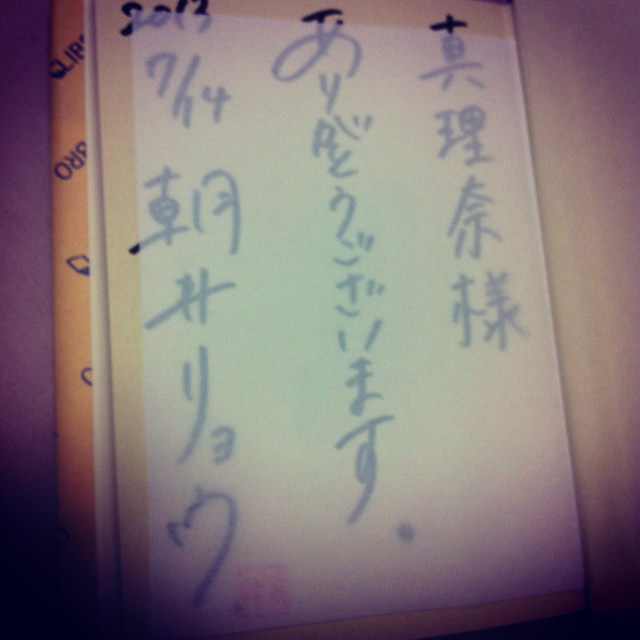 真理奈様
ありがとうございます。
2013
7/14
朝井リョウ